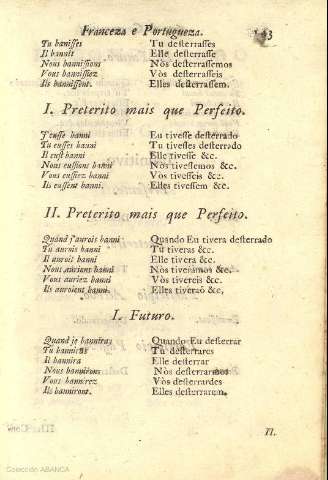 Franceza e Portugueza.
Tu banisses Tu desterrasses
Il bannit Elle desterrasse
Nous bannissions Nòs desterrassemos
Vous bannissiez Vòs desterrasseis
Ils bannissent. Elles desterrassem.
I. Preterito mais que Perfeito.
J'eusse banni Eu tivesse desterrado
Tu eusses banni Tu tivesses desterrado
Il eust banni Elle tivesse &c.
Nous eussions banni Nòs tivessemos &c.
Vous eussiez banni Vòs tivesseis &c.
Ils eussent banni. Elles tivessem &c.
II. Preterito mais que Perfeito.
Quand j'aurois banni Quando Eu tivera desterrado
Tu aurois banni Tu tiveras &c.
Il aurois banni Elle tivera &c.
Nous aurions banni Nòs tiveramos &c.
Vous auriez banni Vòs tivereis &c.
Ils auroient banni. Elles tiveraõ &c.
I. Futuro.
Quand je bannirai Quando Eu desterrar
Tu banniras Tu desterrares
Il bannira Elle desterrar
Nous bannirons Nòs desterrarmos
Vous bannirez Vòs desterrardes
Ils banniront. Elles desterrarem.
II.
Colección ABANCA